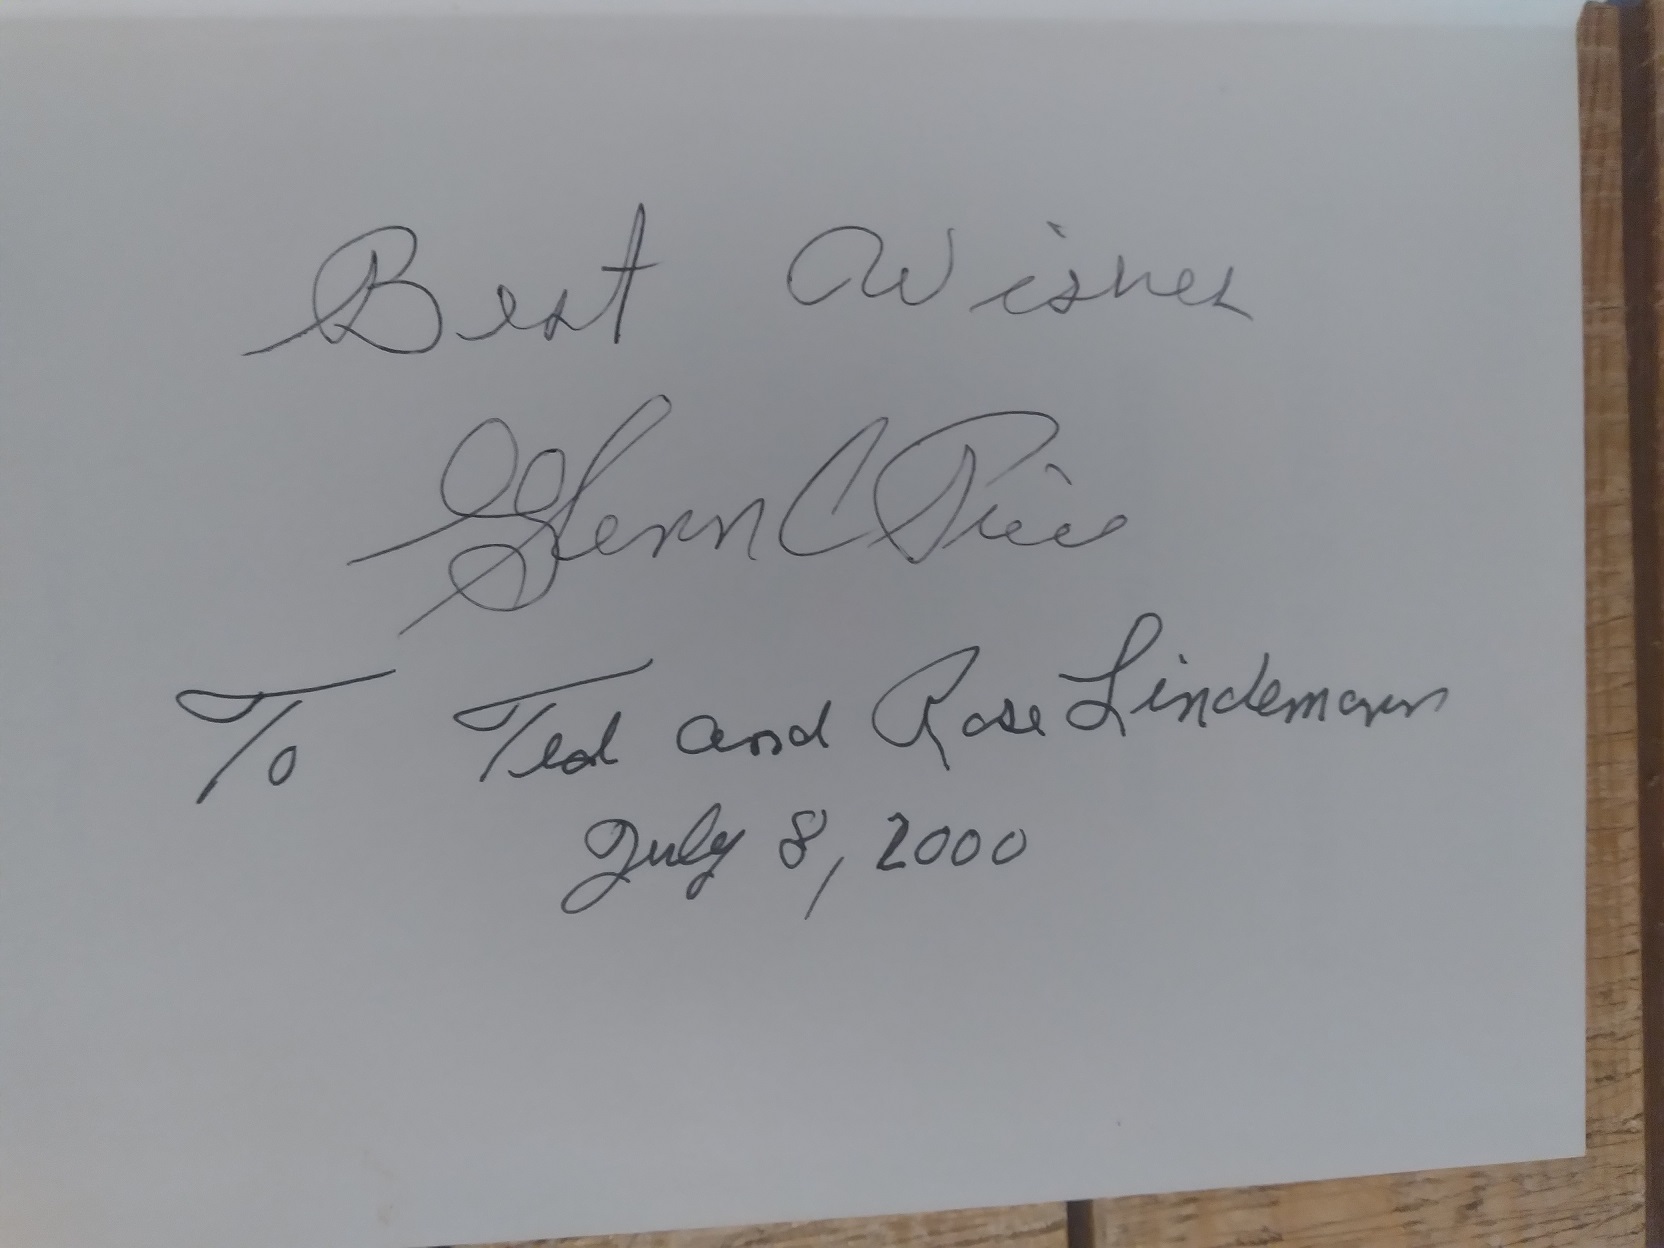 Best Wishes
Glenn C Price
To Ted and Rose Lindemann
July 8, 2000